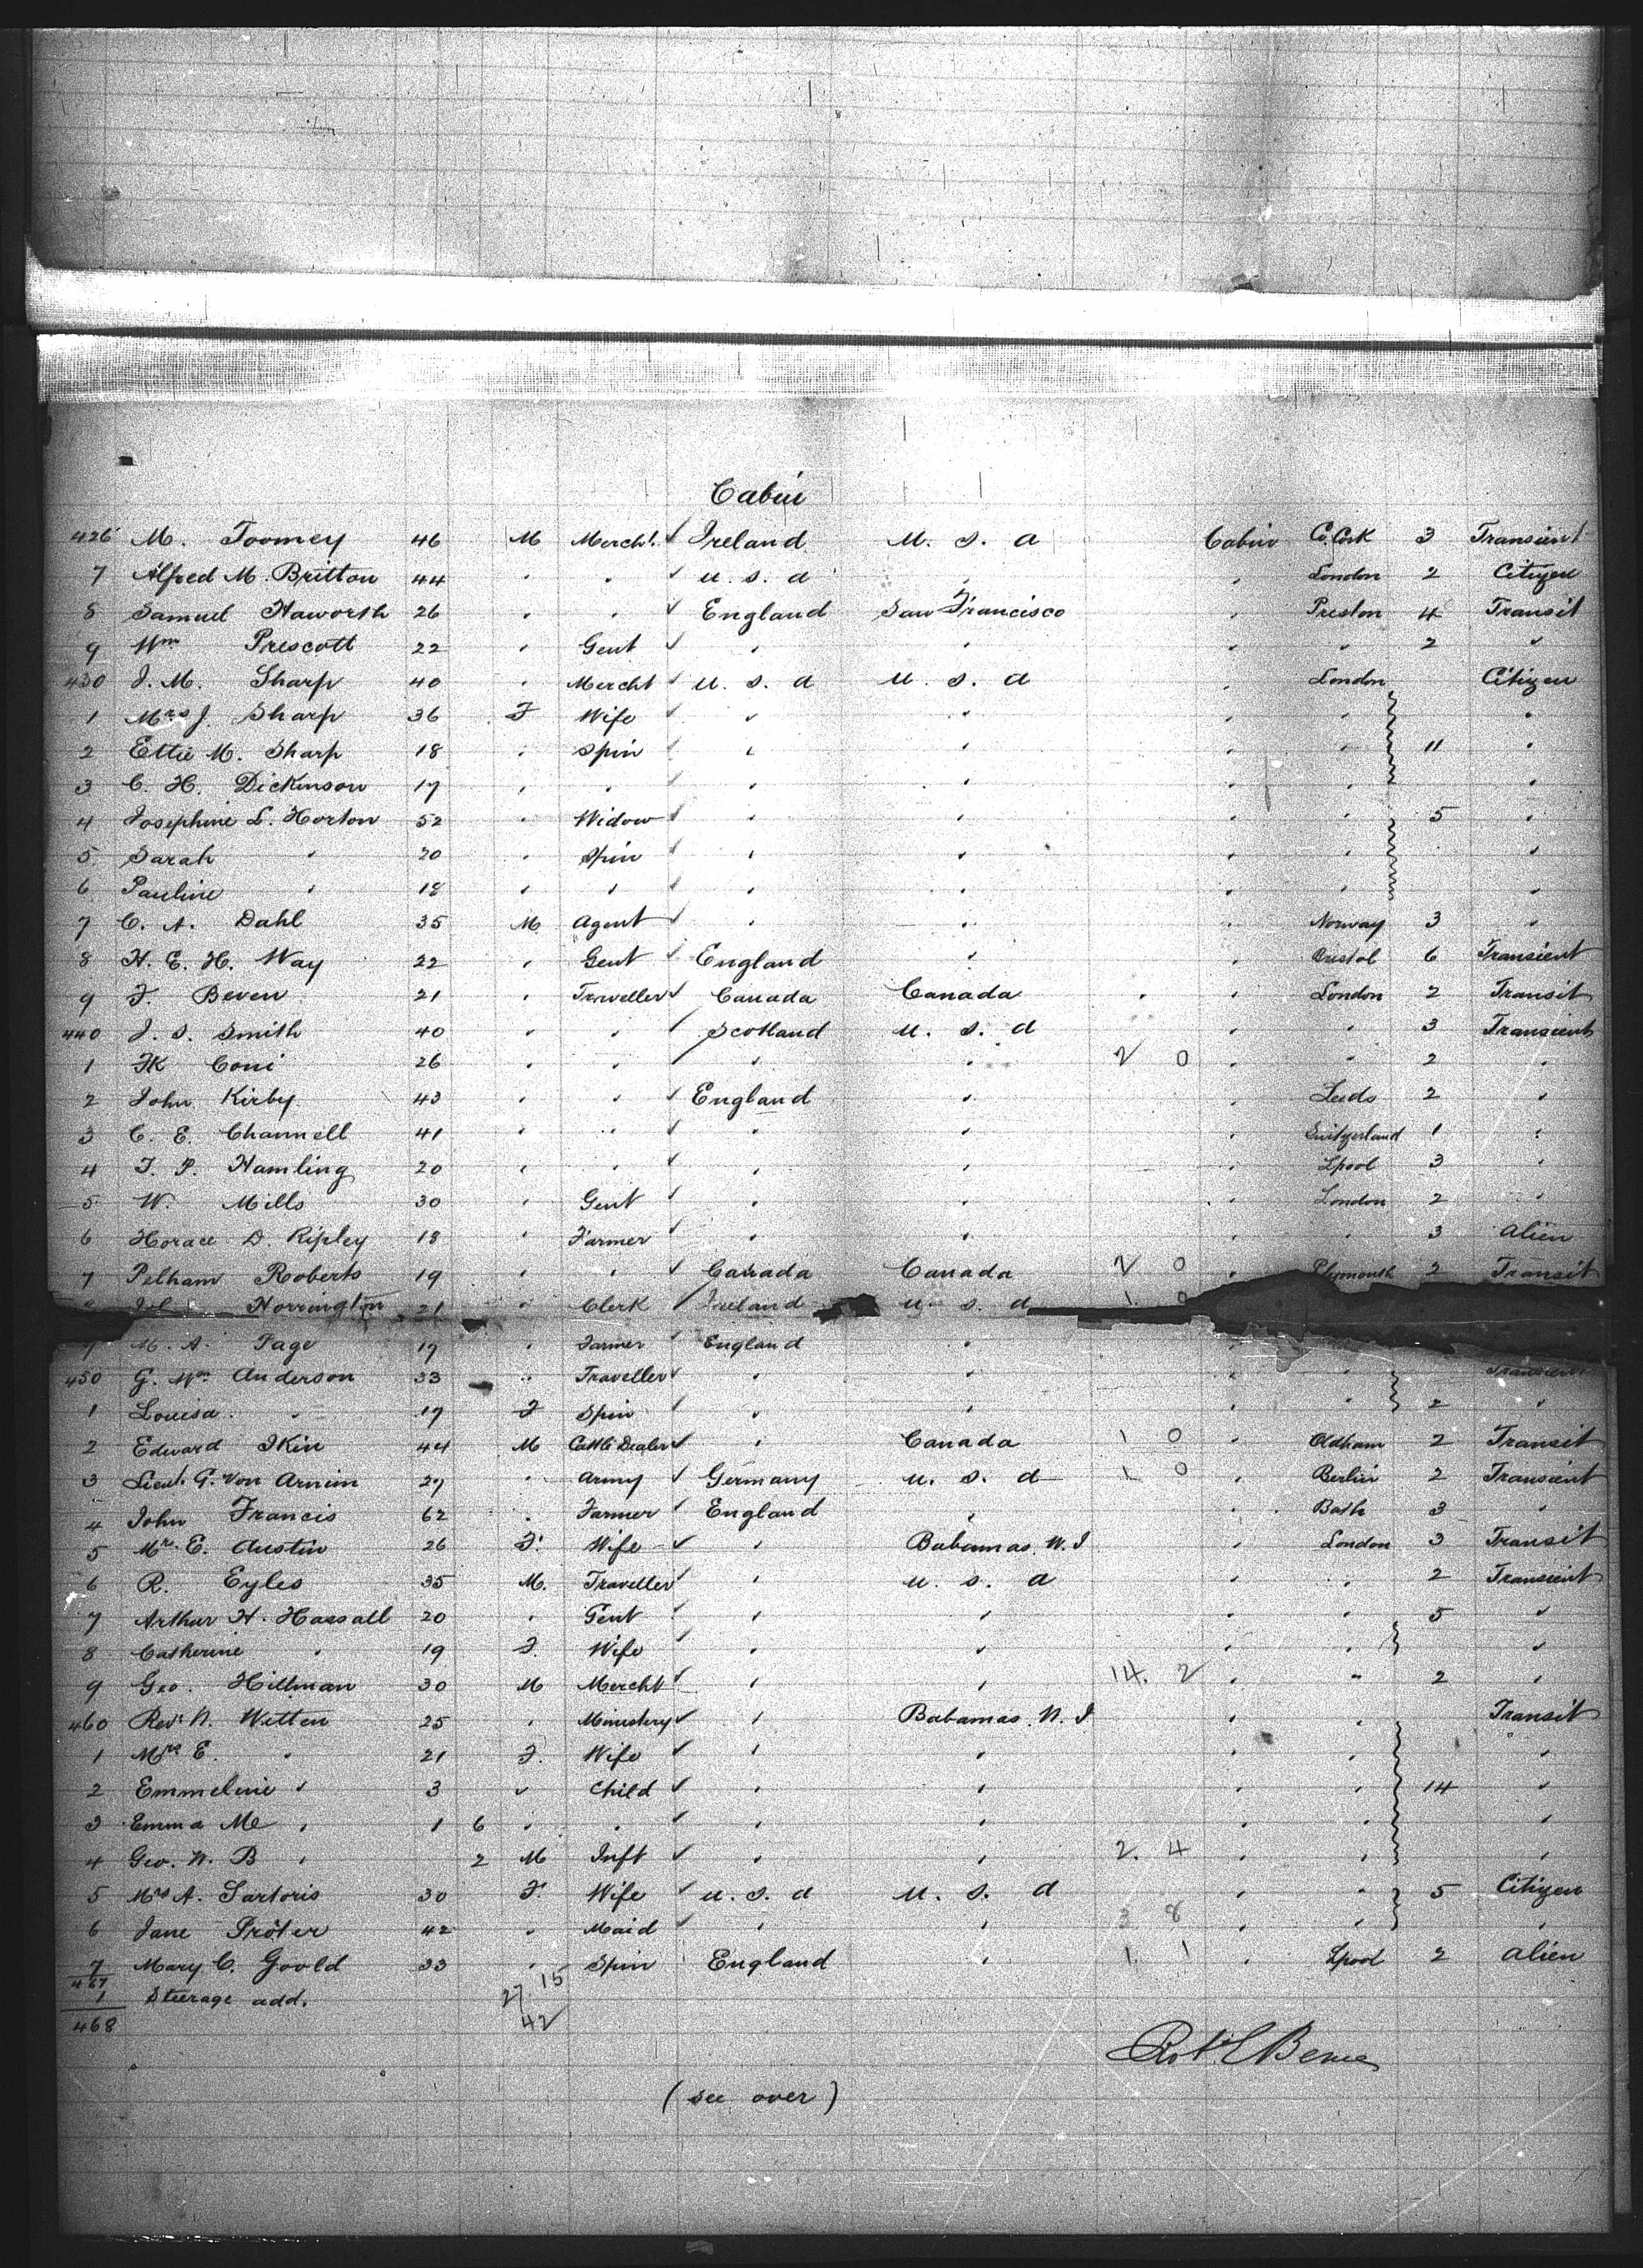 Cabin
426 M. Toomey 46 M Mercht. ✓ Ireland U. S. A Cabin Co. Cork 3 Transient
7 Alfred M. Britton 44 " " ✓ U. S. A " " London 2 Citizen
8 Samuel Haworth 26 " " ✓ England San Francisco " Preston 4 Transit
9 Wm Prescott 22 " Gent ✓ " " " " 2 "
430 J. M. Sharp 40 " Mercht ✓ U. S. A U. S. A " London Citizen
1 Mrs J. Sharp 36 F Wife ✓ " " " " "
2 Ettie M. Sharp 18 " Spin ✓ " " " " 11 "
3 C. H. Dickinson 17 " " ✓ " " " " "
4 Josephine L. Horton 52 " Widow ✓ " " " " 5 "
5 Sarah " 20 " Spin ✓ " " " " "
6 Pauline " 18 " " ✓ " " " " "
7 C. A. Dahl 35 M Agent ✓ " " " Norway 3 "
8 H. E. H. Way 22 " Gent ✓ England " " Bristol 6 Transient
9 F. Beven 21 " Traveller ✓ Canada Canada " " London 2 Transit
440 J. S. Smith 40 " " ✓ Scotland U. S. A " " 3 Transient
1 FK Coni 26 " " ✓ " " 2 0 " " 2 "
2 John Kirby 43 " " ✓ England " " Leeds 2 "
3 C. E. Channell 41 " " ✓ " " " Switzerland 1 "
4 T. P. Hamling 20 " " ✓ " " " Lpool 3 "
5 W. Mills 30 " Gent ✓ " " " London 2 "
6 Horace D. Ripley 18 " Farmer ✓ " " " " 3 Alien
7 Pelham Roberts 19 " " ✓ Canada Canada 2 0 " Plymouth 2 Transit
Horrington 21 " Clerk Ireland U. S. A 1
9 M. A. Page 17 " Farmer ✓ England " "
450 G. Wm. Anderson 33 " Traveller ✓ " " " " Transient
1 Louisa " 17 F Spin ✓ " " " " 2 "
2 Edward Ikin 44 M Cattle Dealer ✓ " Canada 1 0 " Oldham 2 Transit
3 Lieut. G. Von Arnim 27 " Army ✓ Germany U. S. A 1 0 " Berlin 2 Transient
4 John Francis 62 " Farmer ✓ England " " Bath 3 "
5 Mrs. E. Austin 26 F. Wife ✓ " Bahamas. W. I " London 3 Transit
6 R. Eyles 35 M. Traveller ✓ " U. S. A " " 2 Transient
7 Arthur H. Hassall 20 " Gent ✓ " " " " 5 "
8 Catherine " 19 F. Wife ✓ " " " " "
9 Geo. Hillman 30 M Mercht ✓ " " 14. 2 " " 2 "
460 Revd. W. Witten 25 " Ministry ✓ " Bahamas. W. I " " Transit
1 Mrs E. " 21 F. Wife ✓ " " " " "
2 Emmeline " 3 " Child ✓ " " " " 14 "
3 Emma Mc " 1 6 " " ✓ " " " " "
4 Geo. W. B " 2 M Inft ✓ " " 2. 4 " " "
5 Mrs A. Sartoris 30 F. Wife ✓ U. S. A U. S. A " " 5 Citizen
6 Jane Pröter 42 " Maid ✓ " " 3 8 " " "
7 Mary C. Goold 33 " Spin England " 1. 1 " Lpool 2 Alien
467 27 15
1 Steerage add. 42
468
(see over)